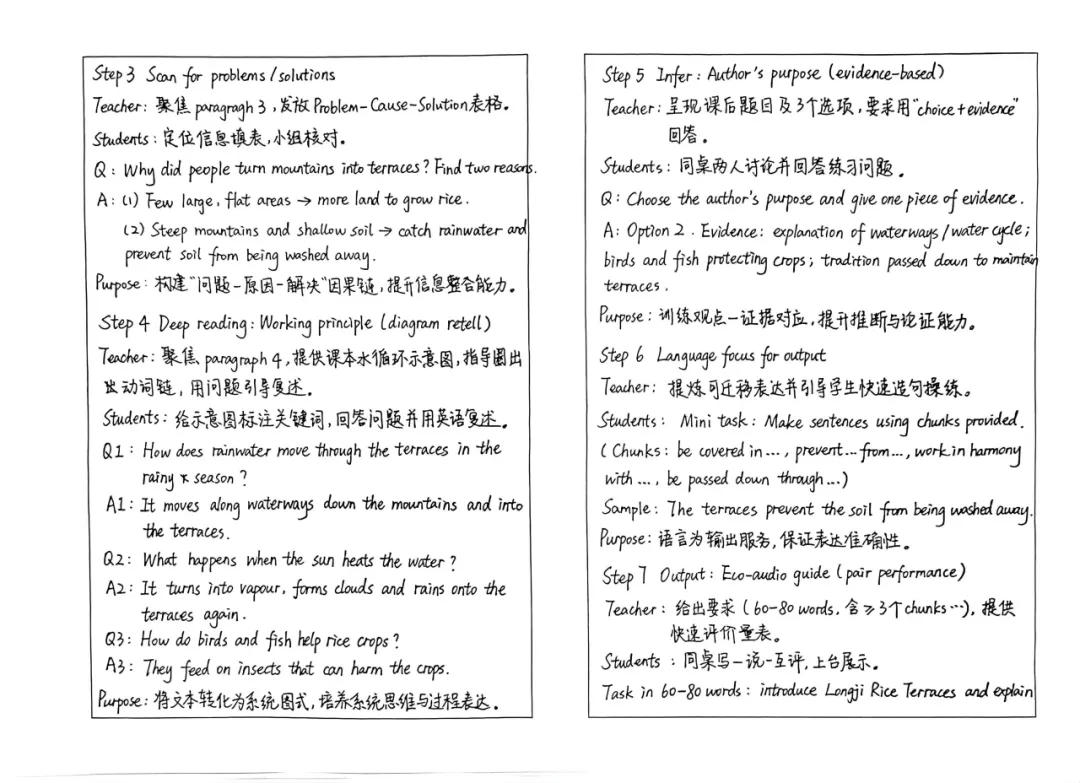 Step 3 Scan for problems/solutions
Teacher: 聚焦 paragragh 3, 发放 Problem-Cause-Solution 表格。
Students: 定位信息填表, 小组核对。
Q: Why did people turn mountains into terraces? Find two reasons.
A: (1) Few large, flat areas → more land to grow rice.
(2) Steep mountains and shallow soil → catch rainwater and
prevent soil from being washed away.
Purpose: 构建"问题-原因-解决"因果链, 提升信息整合能力。
Step 4 Deep reading: Working principle (diagram retell)
Teacher: 聚焦 paragraph 4, 提供课本水循环示意图, 指导圈出
出动词链, 用问题引导复述。
Students: 给示意图标注关键词, 回答问题并用英语复述。
Q1: How does rainwater move through the terraces in the
rainy season?
A1: It moves along waterways down the mountains and into
the terraces.
Q2: What happens when the sun heats the water?
A2: It turns into vapour, forms clouds and rains onto the
terraces again.
Q3: How do birds and fish help rice crops?
A3: They feed on insects that can harm the crops.
Purpose: 将文本转化为系统图式, 培养系统思维与过程表达。
Step 5 Infer: Author's purpose (evidence-based)
Teacher: 呈现课后题目及3个选项, 要求用"choice+evidence"
回答。
Students: 同桌两人讨论并回答练习问题。
Q: Choose the author's purpose and give one piece of evidence.
A: Option 2. Evidence: explanation of waterways/water cycle;
birds and fish protecting crops; tradition passed down to maintain
terraces.
Purpose: 训练观点-证据对应, 提升推断与论证能力。
Step 6 Language focus for output
Teacher: 提炼可迁移表达并引导学生快速造句操练。
Students: Mini task: Make sentences using chunks provided.
(Chunks: be covered in..., prevent...from..., work in harmony
with..., be passed down through...)
Sample: The terraces prevent the soil from being washed away.
Purpose: 语言为输出服务, 保证表达准确性。
Step 7 Output: Eco-audio guide (pair performance)
Teacher: 给出要求 (60-80 words, 含≥3个chunks…), 提供
快速评价量表。
Students: 同桌写-说-互评, 上台展示。
Task in 60-80 words: introduce Longji Rice Terraces and explain